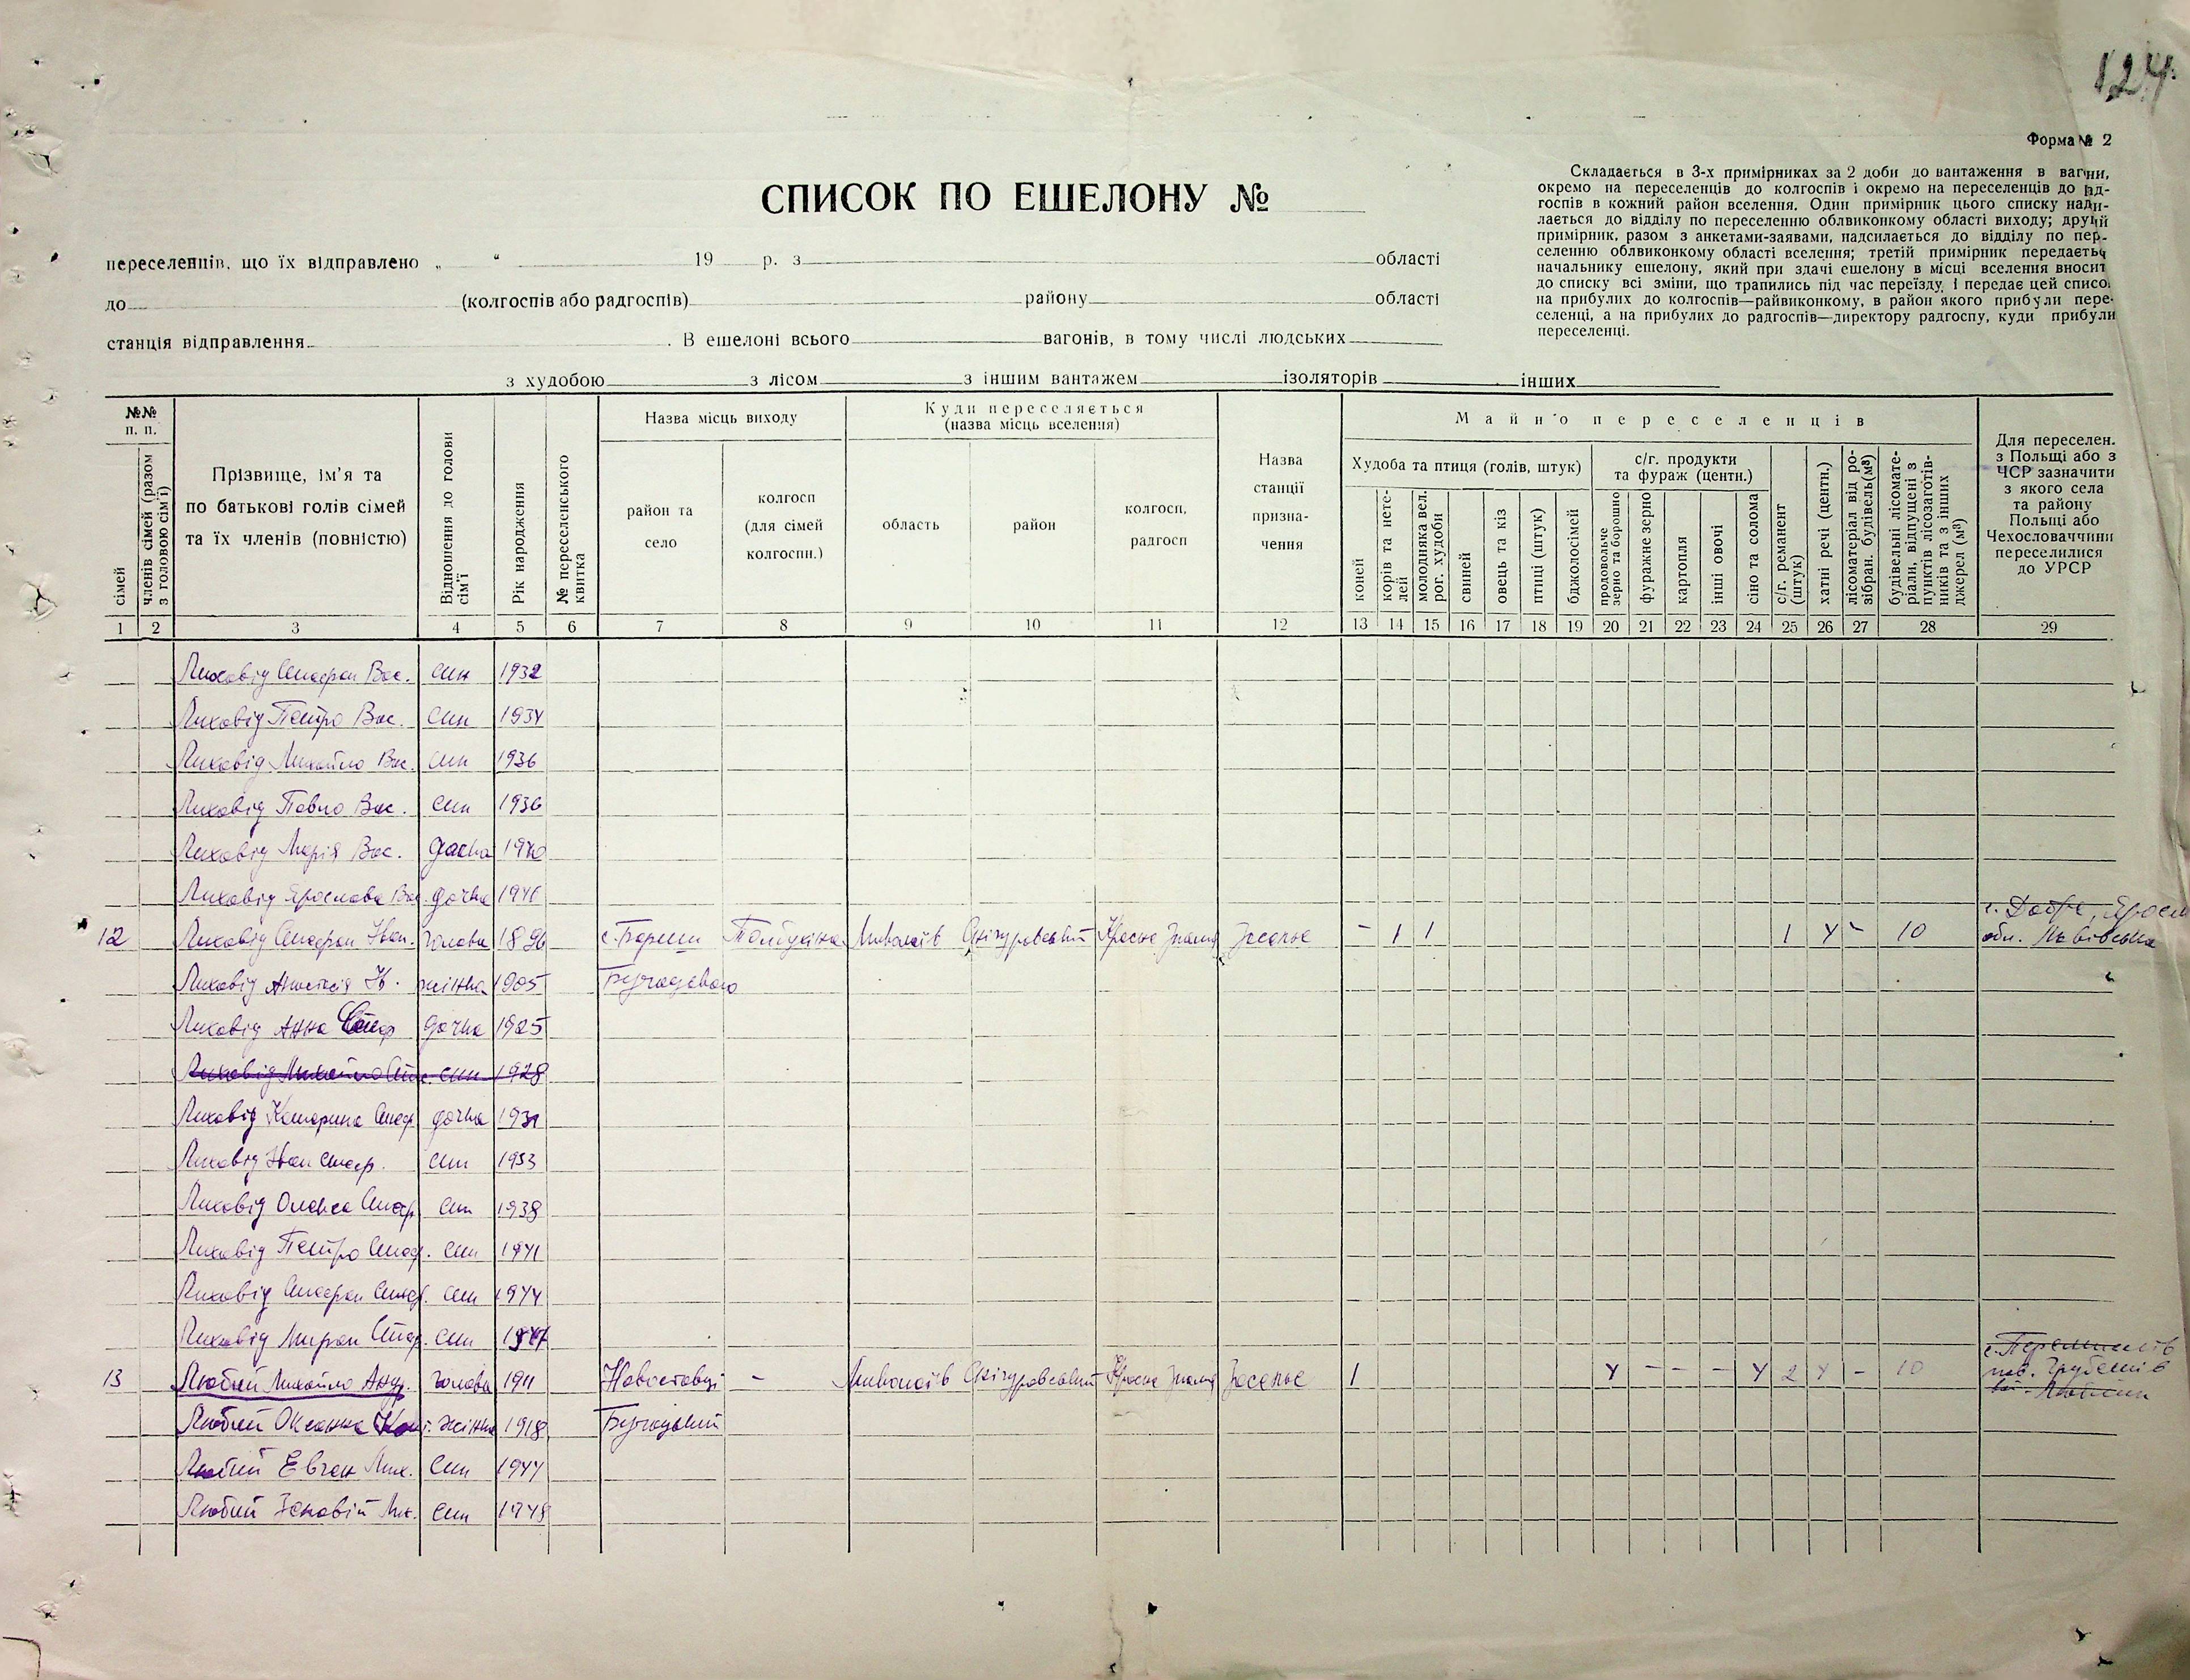 124
Форма № 2
СПИСОК ПО ЕШЕЛОНУ №
Складається в 3-х примірниках за 2 доби до вантаження в вагони,
окремо на переселенців до колгоспів і окремо на переселенців до рад-
госпів в кожний район вселення. Один примірник цього списку надси-
лається до відділу по переселенню облвиконкому області виходу; другий
примірник, разом з анкетами-заявами, надсилається до відділу по пере-
селенню облвиконкому області вселення; третій примірник передається
начальнику ешелону, який при здачі ешелону в місці вселення вносить
до списку всі зміни, що трапились під час переїзду, і передає цей список
на прибулих до колгоспів—райвиконкому, в район якого прибули пере-
селенці, а на прибулих до радгоспів—директору радгоспу, куди прибули
переселенці.
переселенців, що їх відправлено „ “ 19 р. з області
до (колгоспів або радгоспів) району області
станція відправлення . В ешелоні всього вагонів, в тому числі людських
з худобою з лісом з іншим вантажем ізоляторів інших
№№ п. п.
сімей
членів сімей (разом з головою сім'ї)
Прізвище, ім'я та
по батькові голів сімей
та їх членів (повністю)
Відношення до голови сім'ї
Рік народження
№ переселенського квитка
Назва місць виходу
район та село
колгосп (для сімей колгоспн.)
Куди переселяється
(назва місць вселення)
область
район
колгосп, радгосп
Назва станції призна-чення
Майно переселенців
Худоба та птиця (голів, штук)
коней
корів та нете-лей
молодняка вел. рог. худоби
свиней
овець та кіз
птиці (штук)
бджолосімей
с/г. продукти та фураж (центн.)
продовольче зерно та борошно
фуражне зерно
картопля
інші овочі
сіно та солома
с/г. реманент (штук)
хатні речі (центн.)
лісоматеріал від ро-зібран. будівель(м³)
будівельні лісомате-ріали, відпущені з пунктів лісозаготів-ників та з інших джерел (м³)
Для переселен.
з Польщі або з
ЧСР зазначити
з якого села
та району
Польщі або
Чехословаччини
переселилися
до УРСР
1 2 3 4 5 6 7 8 9 10 11 12 13 14 15 16 17 18 19 20 21 22 23 24 25 26 27 28 29
Лиховід Стефан Вас. син 1932
Лиховід Петро Вас. син 1934
Лиховід Михайло Вас. син 1936
Лиховід Павло Вас. син 1936
Лиховід Марія Вас. дочка 1940
Лиховід Ярослава Вас. дочка
12 Лиховід Стефан Іван. голова 1896 с. Бариш Миколаїв Снігурівський Заселье - 1 1 1 4 - 10 обл. Львівська
Лиховід Анастасія Ів. жінка 1905
Лиховід Анна Стеф дочка 1925
Лиховід Михайло син 1928
Лиховід Катерина Стеф. дочка 1931
Лиховід Іван Стеф. син 1933
Лиховід Олекса Стеф син 1938
Лиховід Петро Стеф. син 1941
Лиховід Стефан Стеф. син 1944
Лиховід Мирон Стеф. син 1947
13 Любий Михайло Анд. голова 1911 Новоставці - Миколаїв Снігурівський Заселье 1 4 - - - 4 2 4 - 10 пов. Грубешів
Любий Оксанна жінка 1918 Бучацький
Любий Євген Мих. син 1944
Любий Зеновій Мих. син 1948